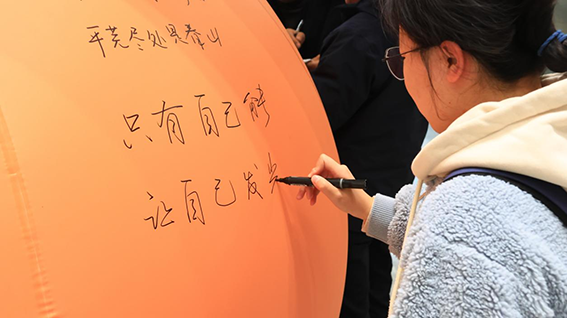 平芜尽处是春山
只有自己能
让自己发光